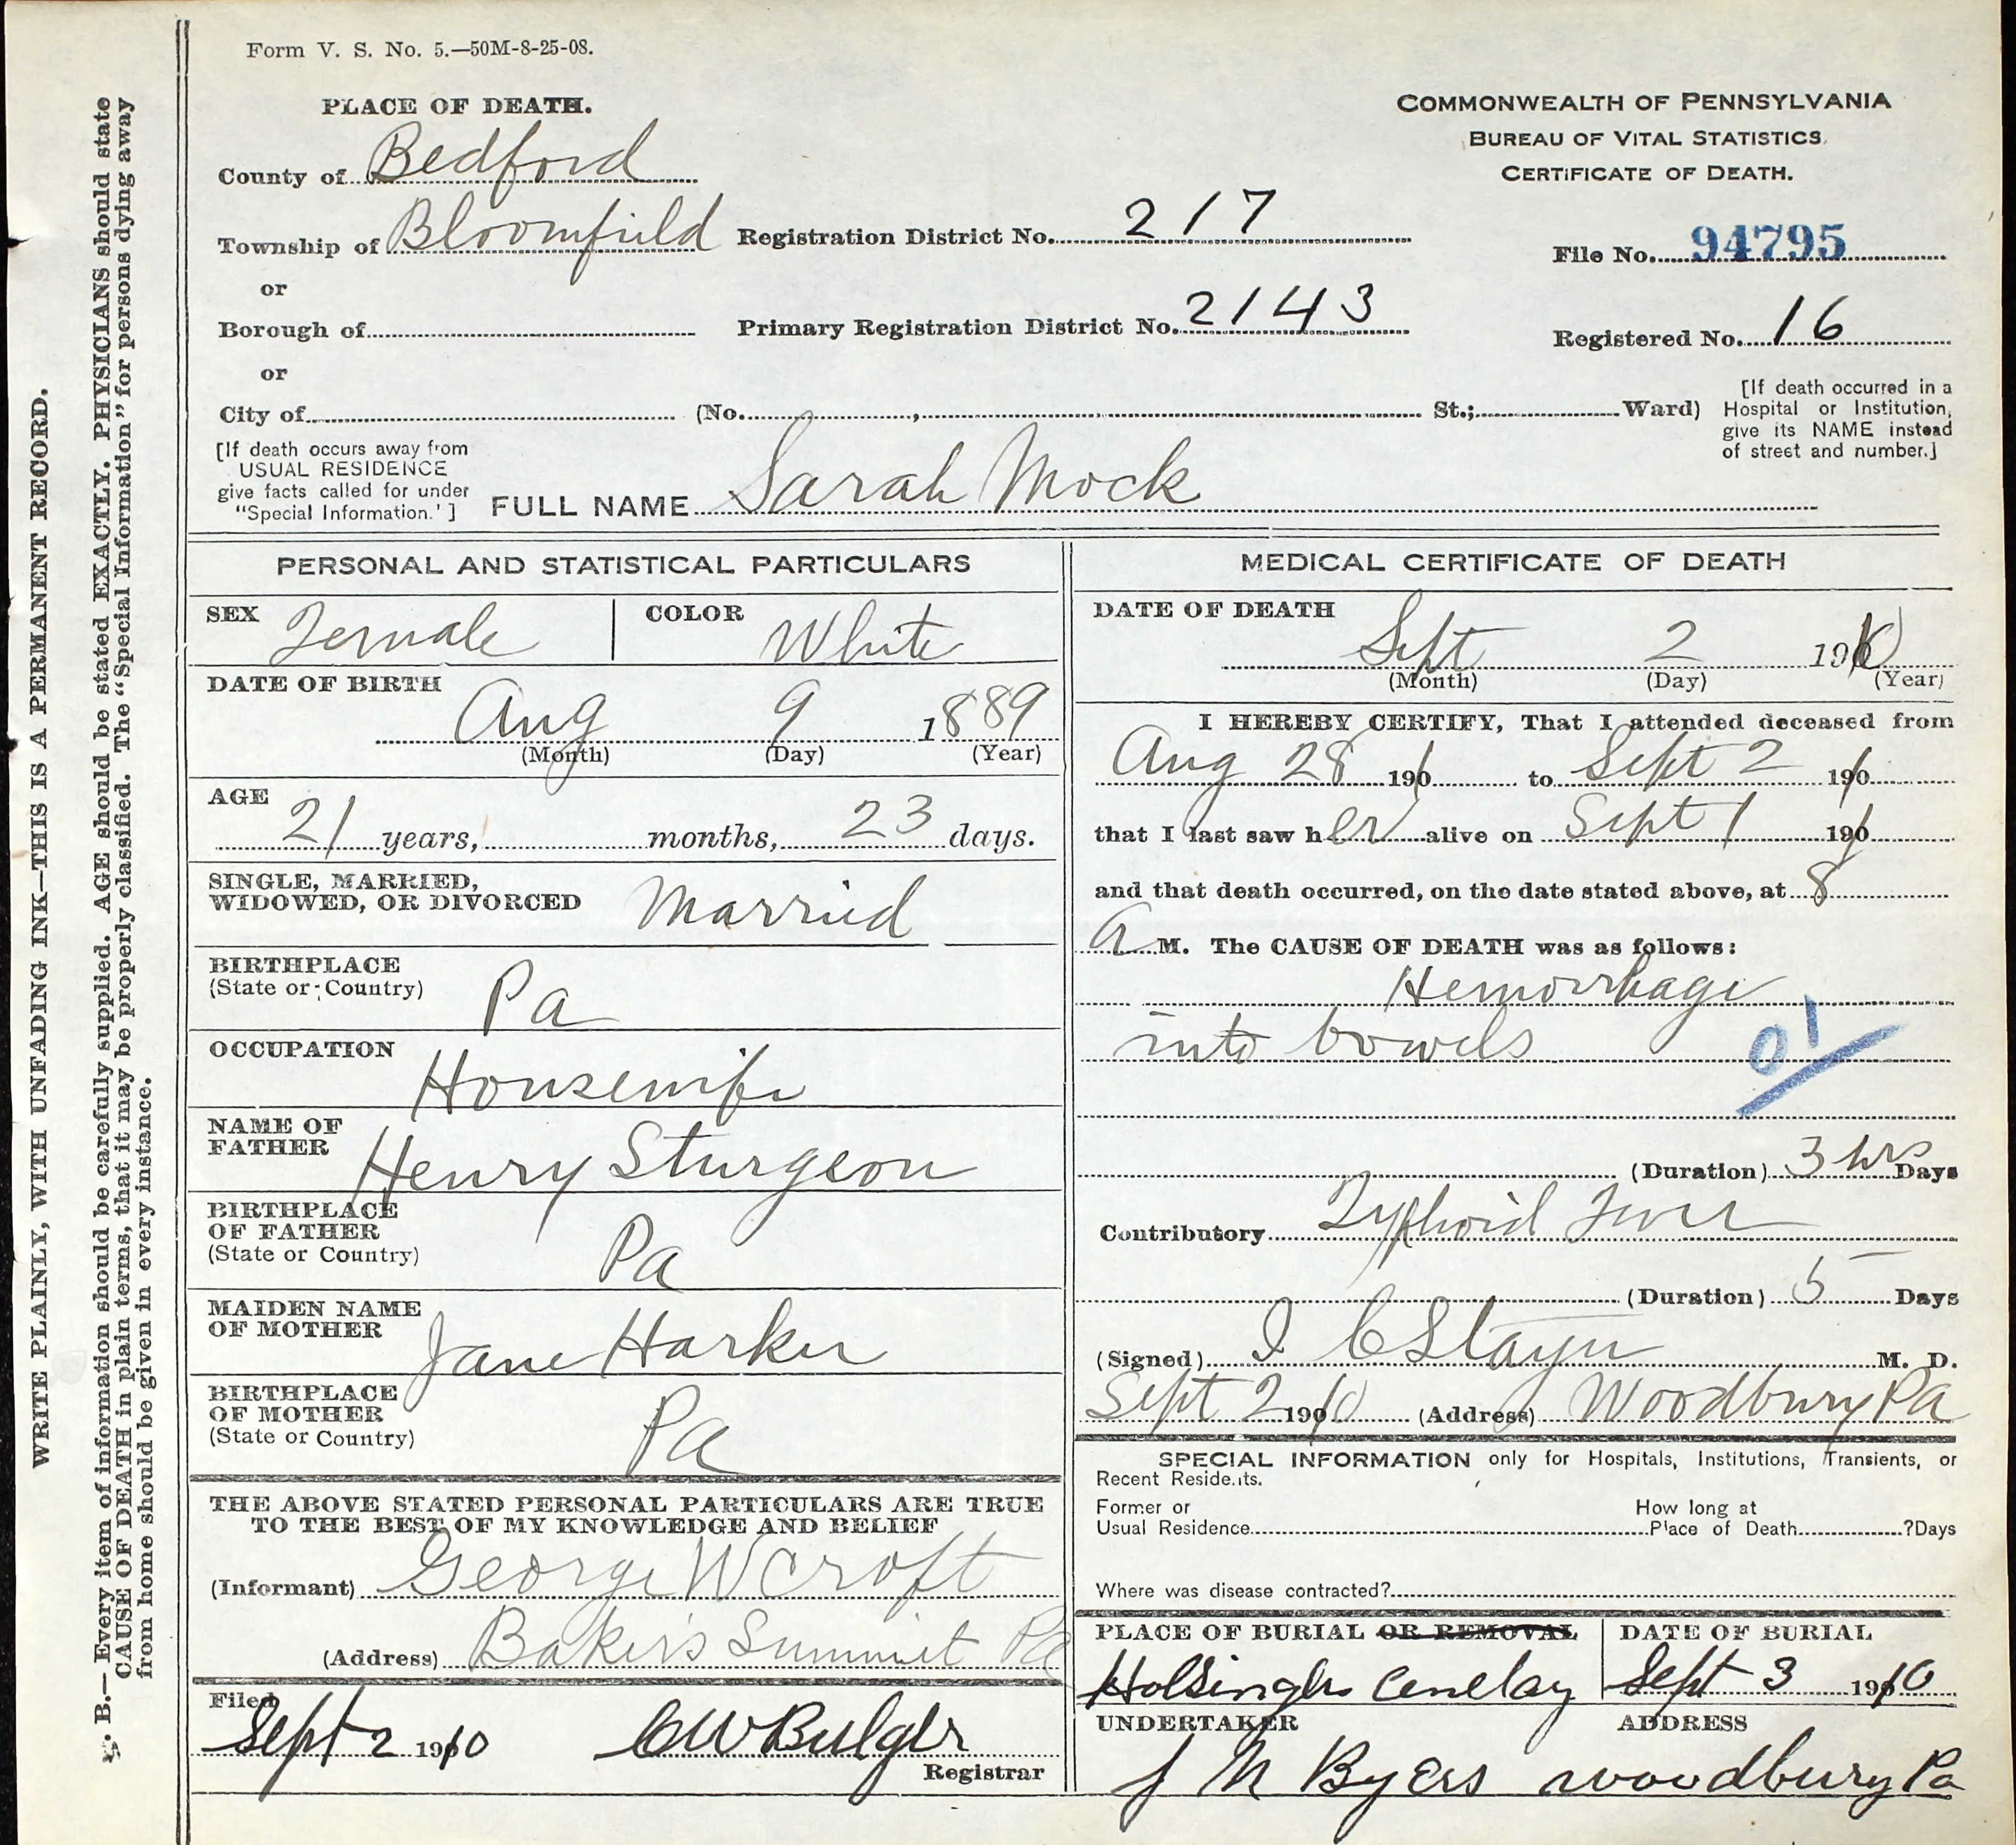 Form V. S. No. 5.—50M-8-25-08.
PLACE OF DEATH.
COMMONWEALTH OF PENNSYLVANIA
BUREAU OF VITAL STATISTICS
CERTIFICATE OF DEATH.
County of Bedford
Township of Bloomfield
Registration District No. 217
File No. 94795
or
Borough of
Primary Registration District No. 2143
Registered No. 16
or
City of (No. , St.; Ward)
[If death occurred in a
Hospital or Institution,
give its NAME instead
of street and number.]
[If death occurs away from
USUAL RESIDENCE
give facts called for under
"Special Information.']
FULL NAME Sarah Mock
PERSONAL AND STATISTICAL PARTICULARS
SEX Female
COLOR White
DATE OF BIRTH
Aug 9 1889
(Month) (Day) (Year)
AGE
21 years, months, 23 days.
SINGLE, MARRIED,
WIDOWED, OR DIVORCED Married
BIRTHPLACE
(State or Country) Pa
OCCUPATION
Housewife
NAME OF
FATHER Henry Sturgeon
BIRTHPLACE
OF FATHER
(State or Country) Pa
MAIDEN NAME
OF MOTHER Jane Harker
BIRTHPLACE
OF MOTHER
(State or Country) Pa
THE ABOVE STATED PERSONAL PARTICULARS ARE TRUE
TO THE BEST OF MY KNOWLEDGE AND BELIEF
(Informant) George W Croft
(Address) Bakers Summit Pa
Filed
Sept 2 1910 C W Bulger
Registrar
MEDICAL CERTIFICATE OF DEATH
DATE OF DEATH
Sept 2 1910
(Month) (Day) (Year)
I HEREBY CERTIFY, That I attended deceased from
Aug 28 1910 to Sept 2 1910
that I last saw her alive on Sept 1 1910
and that death occurred, on the date stated above, at 8
A M. The CAUSE OF DEATH was as follows:
Hemorrhage
into bowels
01
(Duration) 3 hrs Days
Contributory Typhoid Fever
(Duration) 5 Days
(Signed) I C Stayer M. D.
Sept 2 1910 (Address) Woodbury Pa
SPECIAL INFORMATION only for Hospitals, Institutions, Transients, or
Recent Residents.
Former or
Usual Residence
How long at
Place of Death ?Days
Where was disease contracted?
PLACE OF BURIAL OR REMOVAL
Holsinger Cemetay
DATE OF BURIAL
Sept 3 1910
UNDERTAKER
J M Byers
ADDRESS
Woodbury Pa
WRITE PLAINLY, WITH UNFADING INK—THIS IS A PERMANENT RECORD.
N. B.—Every item of information should be carefully supplied. AGE should be stated EXACTLY. PHYSICIANS should state
CAUSE OF DEATH in plain terms, that it may be properly classified. The "Special Information" for persons dying away
from home should be given in every instance.